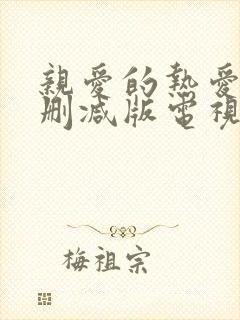 親愛的熱愛
刪減版電視
梅祖宗